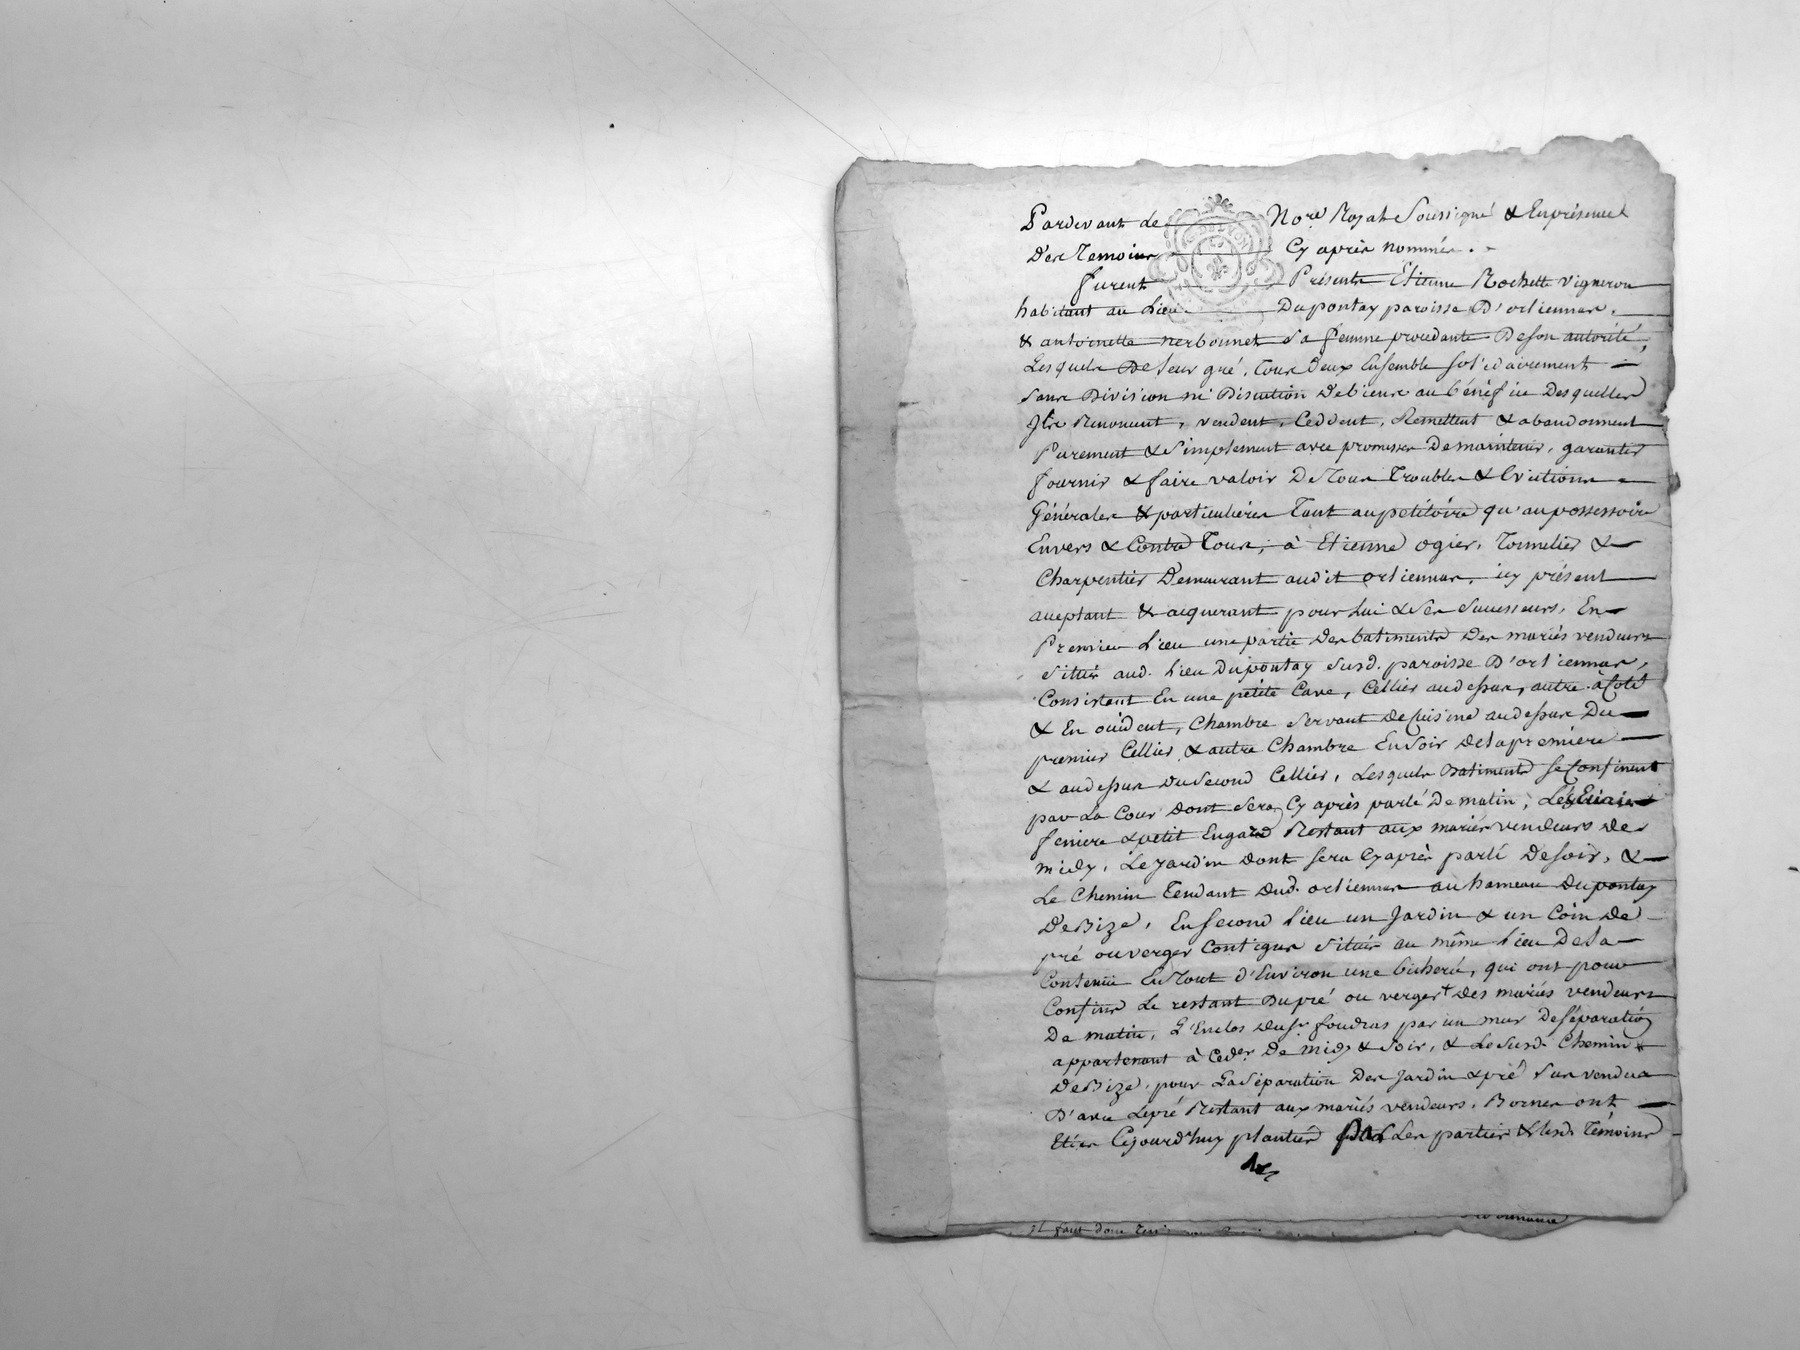 Pardevant Le Nore. Royal Soussigné & En présence
Des Temoins Cy après nommés.
furent Présents Etienne Rochette Vigneron
habitant au Lieu Du pontay paroisse D'orliennas,
& antoinette nerbonnet Sa femme procedante De son autorité,
Lesquels De leur gré, Tous Deux Ensemble solidairement
Sans Division ni Discution De biens au bénéfice Desquelles
Ils Renoncent, vendent, Ceddent, Remettent & abandonnent
Purement & Simplement avec promesse De maintenir, garantir
fournir & faire valoir De Tous Troubles & Evictions
Générales & particulières Tant au petitoire qu'au possessoire
Envers & Contre Tous, à Etienne ogier, Tonnelier &
Charpentier Demeurant audit orliennas, icy présent
acceptant & acquerant pour Lui & Ses Successeurs, En
Premier Lieu une partie Des batiments Des mariés vendeurs
Situés aud. Lieu Du pontay Susd. paroisse D'orliennas,
Consistant En une petite Cave, Cellier au dessus, autre à Coté
& En occident, Chambre Servant De Cuisine au dessus Du
premier Cellier, & autre Chambre En Soir De la premiere
& au dessus Du Second Cellier, Lesquels Batiments se Confinent
par La Cour Dont Sera Cy après parlé De matin, L'Ecurie
feniere & petit Engard Restant aux mariés vendeurs De
midy, Le Jardin Dont sera Cy après parlé De soir, &
Le Chemin Tendant Dud. orliennas au hameau Du pontay
De Bize, En second Lieu un Jardin & un Coin De
pré ou verger Contigus Situés au même Lieu De la
Contenue En Tout D'Environ une bicherée, qui ont pour
Confins Le restant Du pré ou verger + Des mariés vendeurs
De matin, L'Enclos Du sr. foudras par un mur De séparation
appartenant à Ceder. De midy & Soir, & Le Susd. Chemin
De Bize, pour La Séparation Des Jardin & pré Sus vendus
D'avec Le pré Restant aux mariés vendeurs, Bornes ont
Etées Cejourd'huy plantées par Les parties & lesd. Témoins
il faut donc